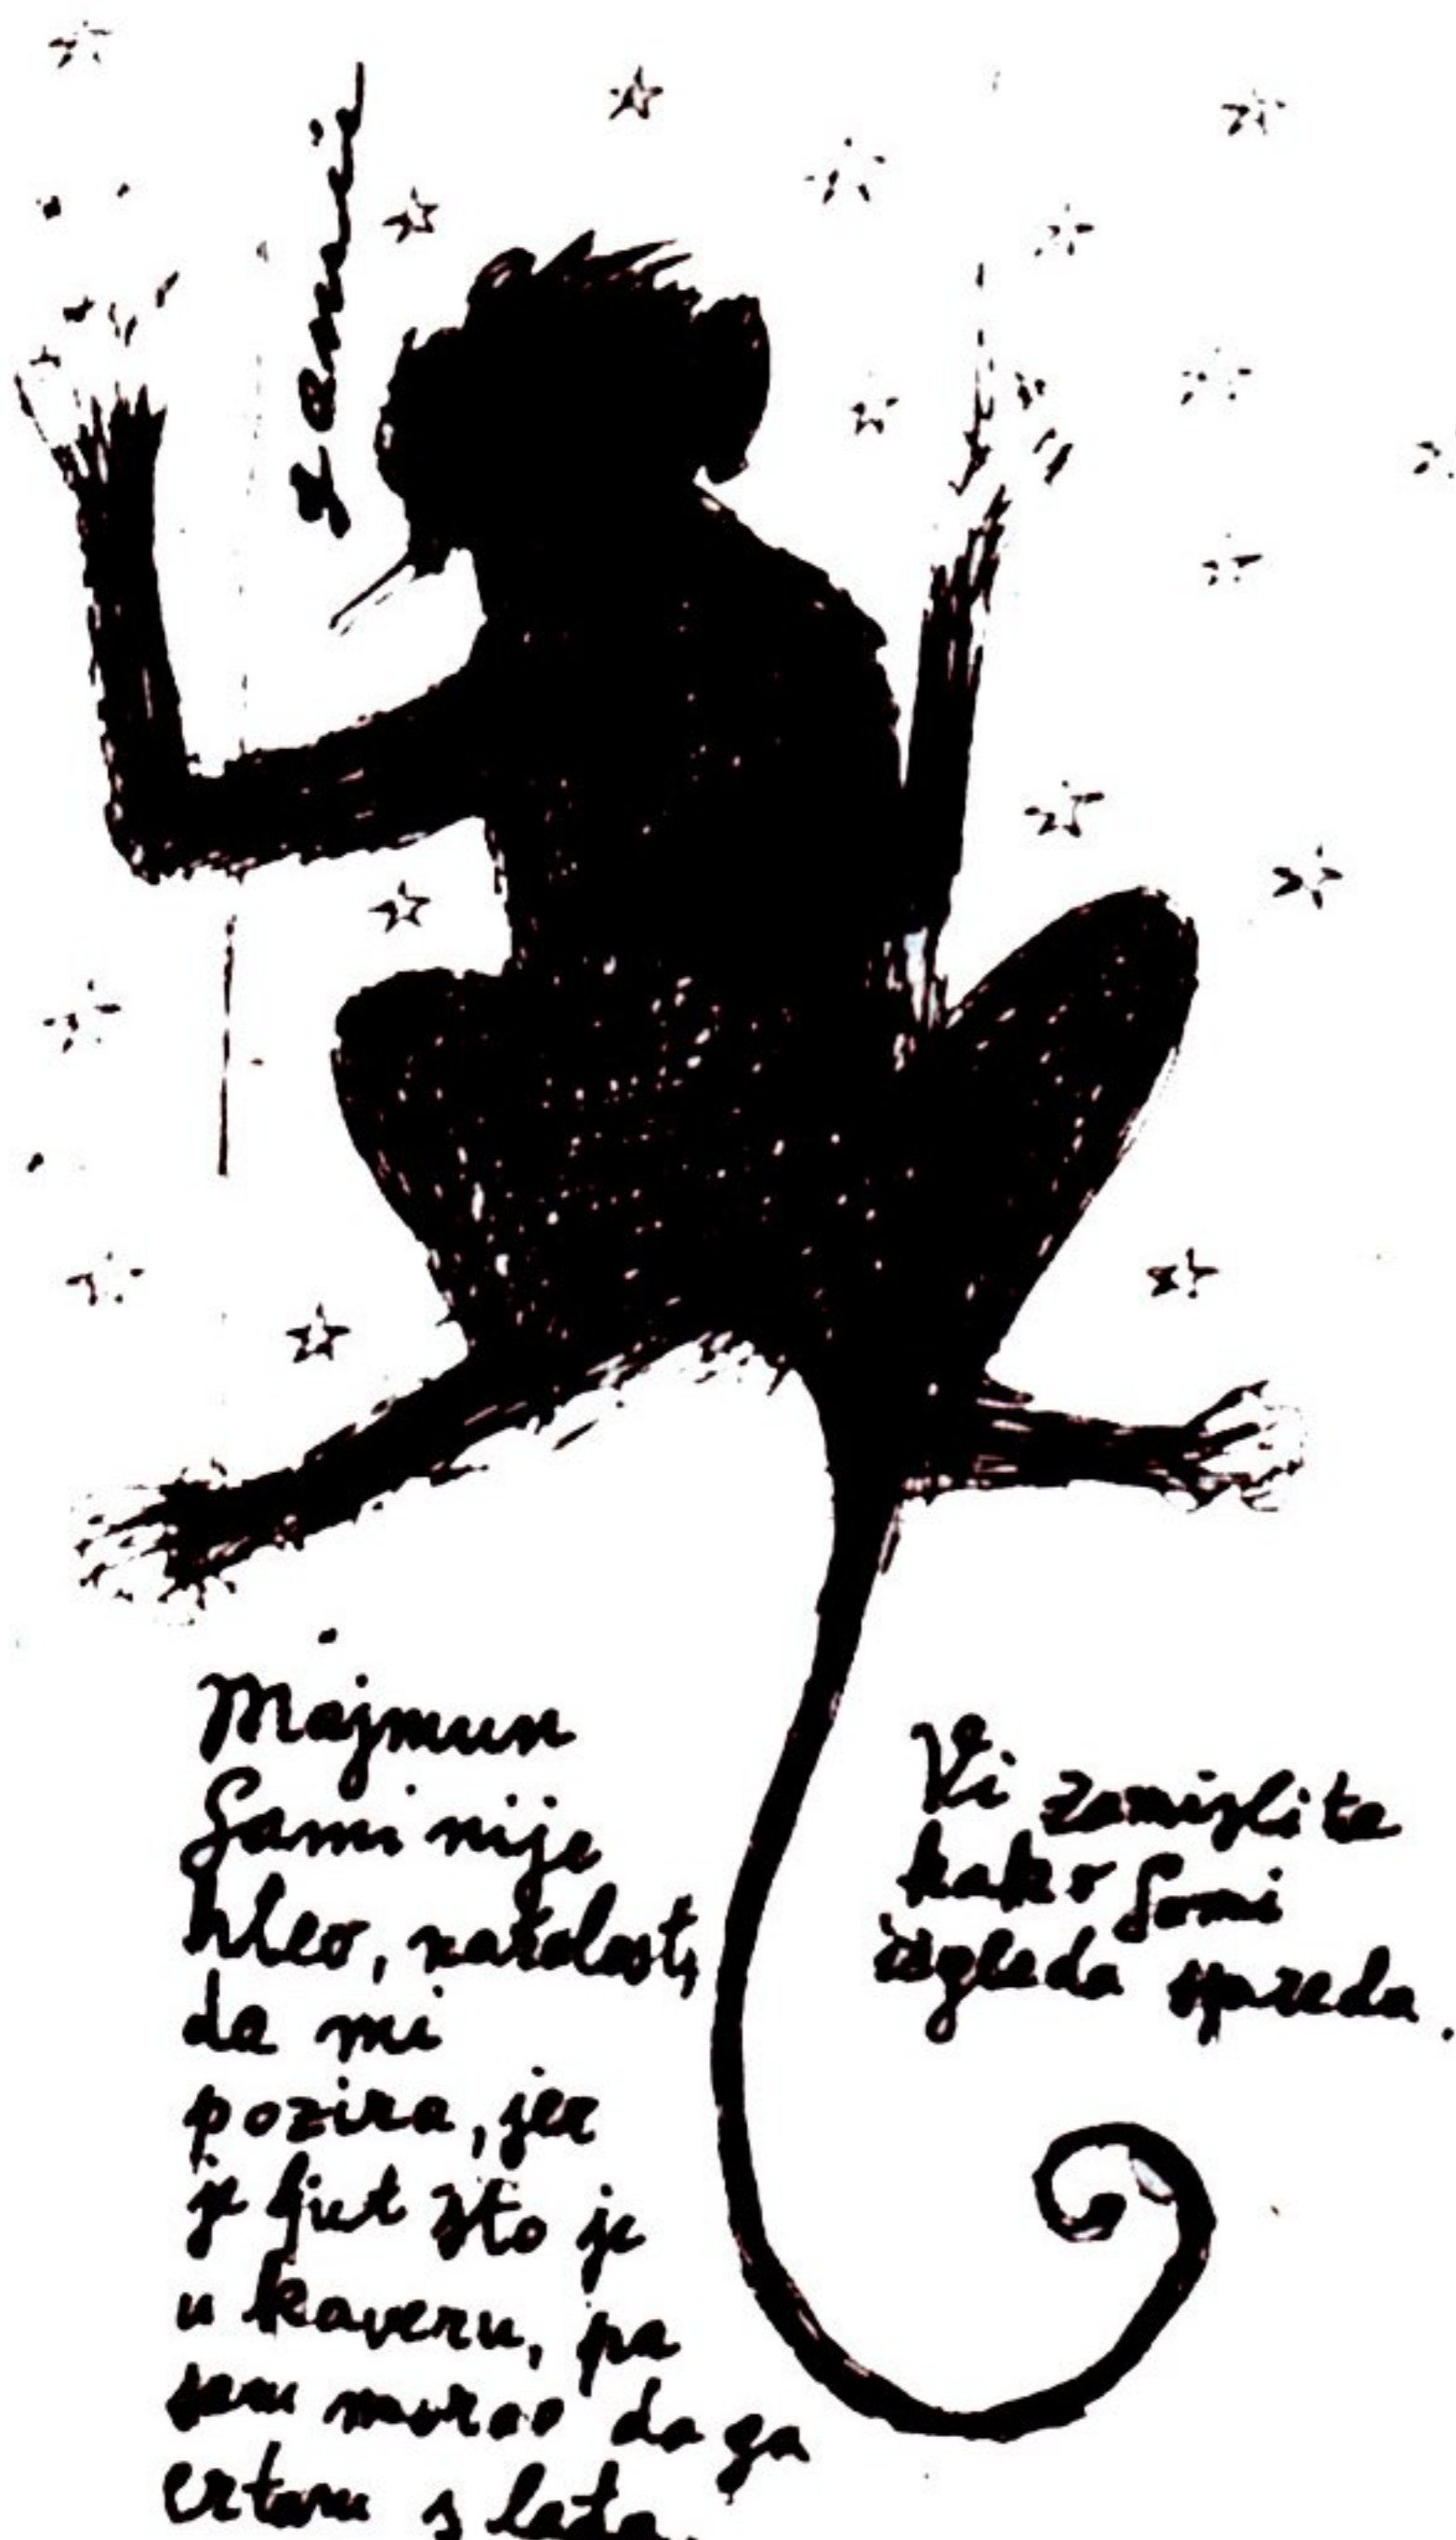 Majmun
Sami nije
hteo, nažalost,
da mi
pozira, jer
je ljut što je
u kavezu, pa
sam morao da ga
crtam s leđa.
Vi zamislite
kako Sami
izgleda spreda.